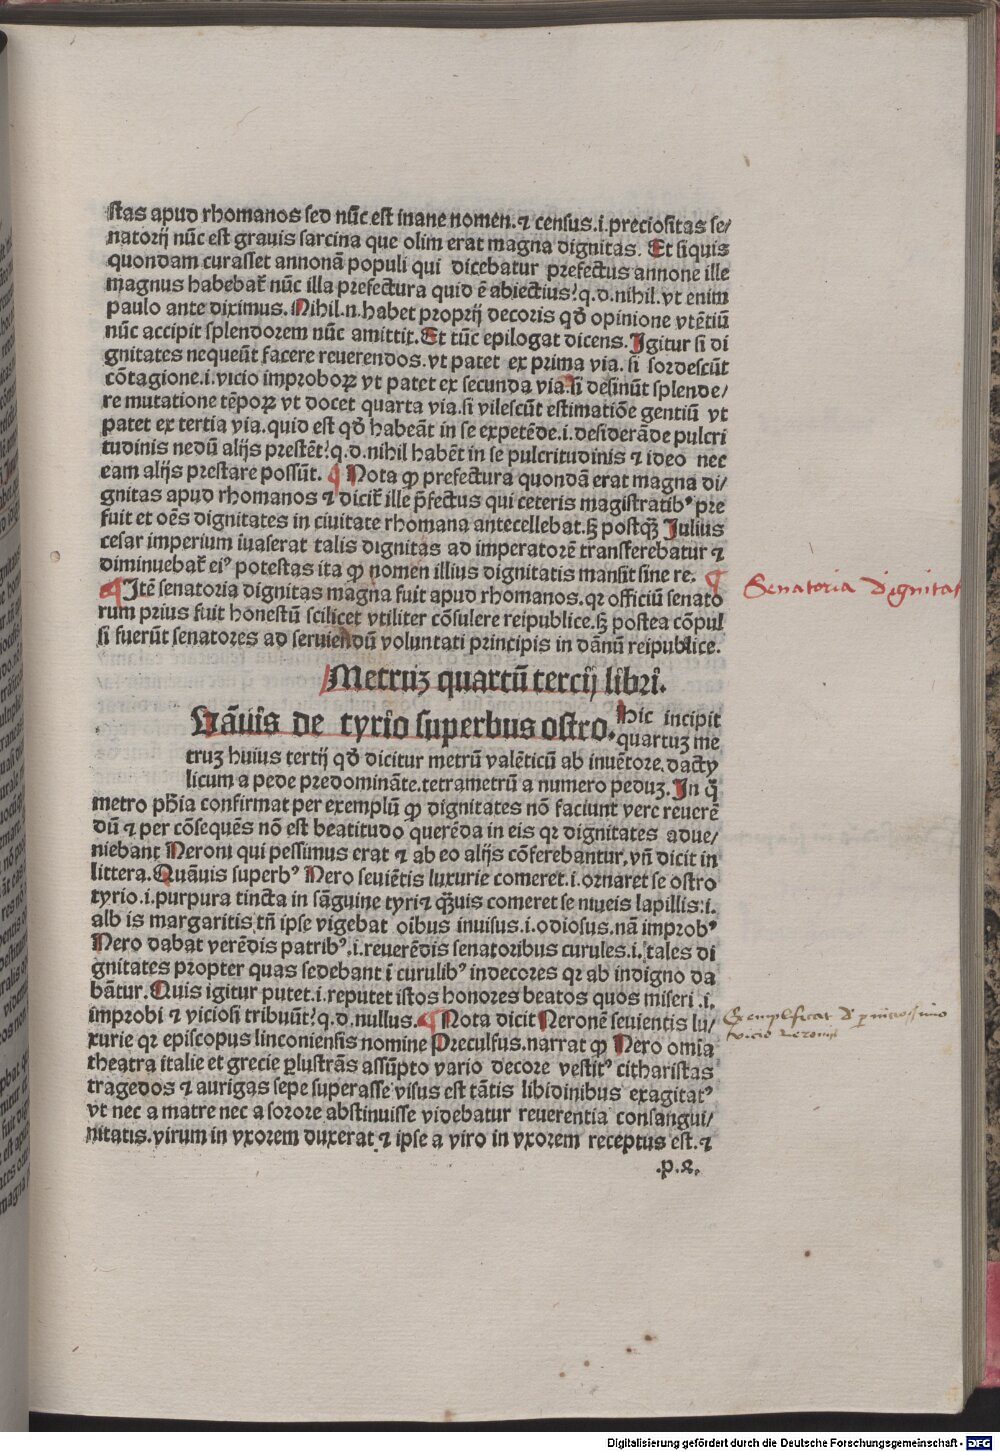 stas apud rhomanos sed nũc est inane nomen.⁊ census.i.preciositas se/
natorij nũc est grauis sarcina que olim erat magna dignitas. Et siquis
quondam curasset annonã populi qui dicebatur prefectus annone ille
magnus habebat̃ nũc illa prefectura quid ẽ abiectius?q.d.nihil.vt enim
paulo ante diximus. Nihil.n.habet proprij decoris qd̃ opinione vtẽtiũ
nũc accipit splendorem nũc amittit.Et tũc epilogat dicens.Igitur si di
gnitates nequeũt facere reuerendos.vt patet ex prima via. si sordescũt
cõtagione.i.vicio improboꝝ vt patet ex secunda via.si desinũt splende/
re mutatione tẽpoꝝ vt docet quarta via.si vilescũt estimatiõe gentiũ vt
patet ex tertia via.quid est qd̃ habeãt in se expetẽde.i.desiderãde pulcri
tudinis nedũ alijs prestẽt?q.d.nihil habẽt in se pulcritudinis ⁊ ideo nec
eam alijs prestare possũt. ¶ Nota ꝙ prefectura quondã erat magna di/
gnitas apud rhomanos ⁊ dicit̃ ille p̃fectus qui ceteris magistratibꝰ pre
fuit et oẽs dignitates in ciuitate rhomana antecellebat.hꝫ postqꝫ̃ Julius
cesar imperium iuaserat talis dignitas ad imperatorẽ transferebatur ⁊
diminuebat̃ eiꝰ potestas ita ꝙ nomen illius dignitatis mansit sine re. ¶
¶Itẽ senatoria dignitas magna fuit apud rhomanos.qr officiũ senato
rum prius fuit honestũ scilicet vtiliter cõsulere reipublice.hꝫ postea cõpul
si fuerũt senatores ad seruiendũ voluntati principis in dãnũ reipublice.
Senatoria dignitas
Metruꝫ quartũ tercij libri.
Vãuis de tyrio superbus ostro.
Hic incipit
quartuꝫ me
truꝫ huius tertij qd̃ dicitur metrũ valẽticũ ab inuẽtore.dacty
licum a pede predominãte.tetrametrũ a numero peduꝫ.In q̃
metro pħia confirmat per exemplũ ꝙ dignitates nõ faciunt vere reuerẽ
dũ ⁊ per cõsequẽs nõ est beatitudo querẽda in eis qr dignitates adue/
niebant Neroni qui pessimus erat ⁊ ab eo alijs cõferebantur,vñ dicit in
littera.Quãuis superbꝰ Nero seuiẽtis luxurie comeret.i.ornaret se ostro
tyrio.i.purpura tincta in sãguine tyri⁊ qꝫ̃uis comeret se niueis lapillis:i.
alb is margaritis tñ ipse vigebat oibus inuisus.i.odiosus.nã improbꝰ
Nero dabat verẽdis patribꝰ.i.reuerẽdis senatoribus curules.i.tales di
gnitates propter quas sedebant ĩ curulibꝰ indecores qr ab indigno da
bãtur.Quis igitur putet.i.reputet istos honores beatos quos miseri .i.
improbi ⁊ viciosi tribuũt?q.d.nullus.¶Nota dicit Neronẽ seuientis lu/
xurie qr episcopus linconiensis nomine Preculsus.narrat ꝙ Nero omĩa
theatra italie et grecie ꝑlustrãs assũpto vario decore vestitꝰ citharistas
tragedos ⁊ aurigas sepe superasse visus est tãtis libidinibus exagitatꝰ
vt nec a matre nec a sorore abstinuisse videbatur reuerentia consangui/
nitatis.virum in vxorem duxerat ⁊ ipse a viro in vxorem receptus est.⁊
Exemplificat d
vicio neronis
.p.2.
Digitalisierung gefördert durch die Deutsche Forschungsgemeinschaft - DFG